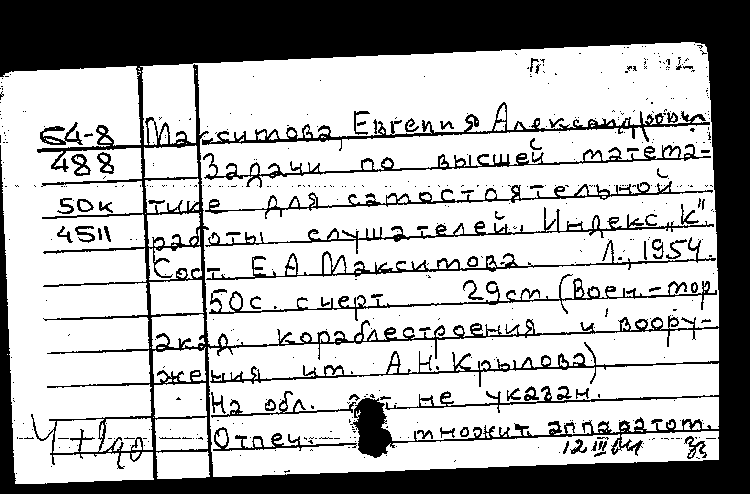 64-8 Максимова, Евгения Александровна
488 Задачи по высшей матема-
50к тике для самостоятельной
4511 работы слушателей. Индекс „К"
Сост. Е.А. Максимова. Л., 1954.
50с. с черт. 29см. (Воен.-мор.
акад. кораблестроения и воору-
жения им. А.Н. Крылова).
На обл. авт. не указан.
Отпеч. множит. аппаратом.
12 III 64